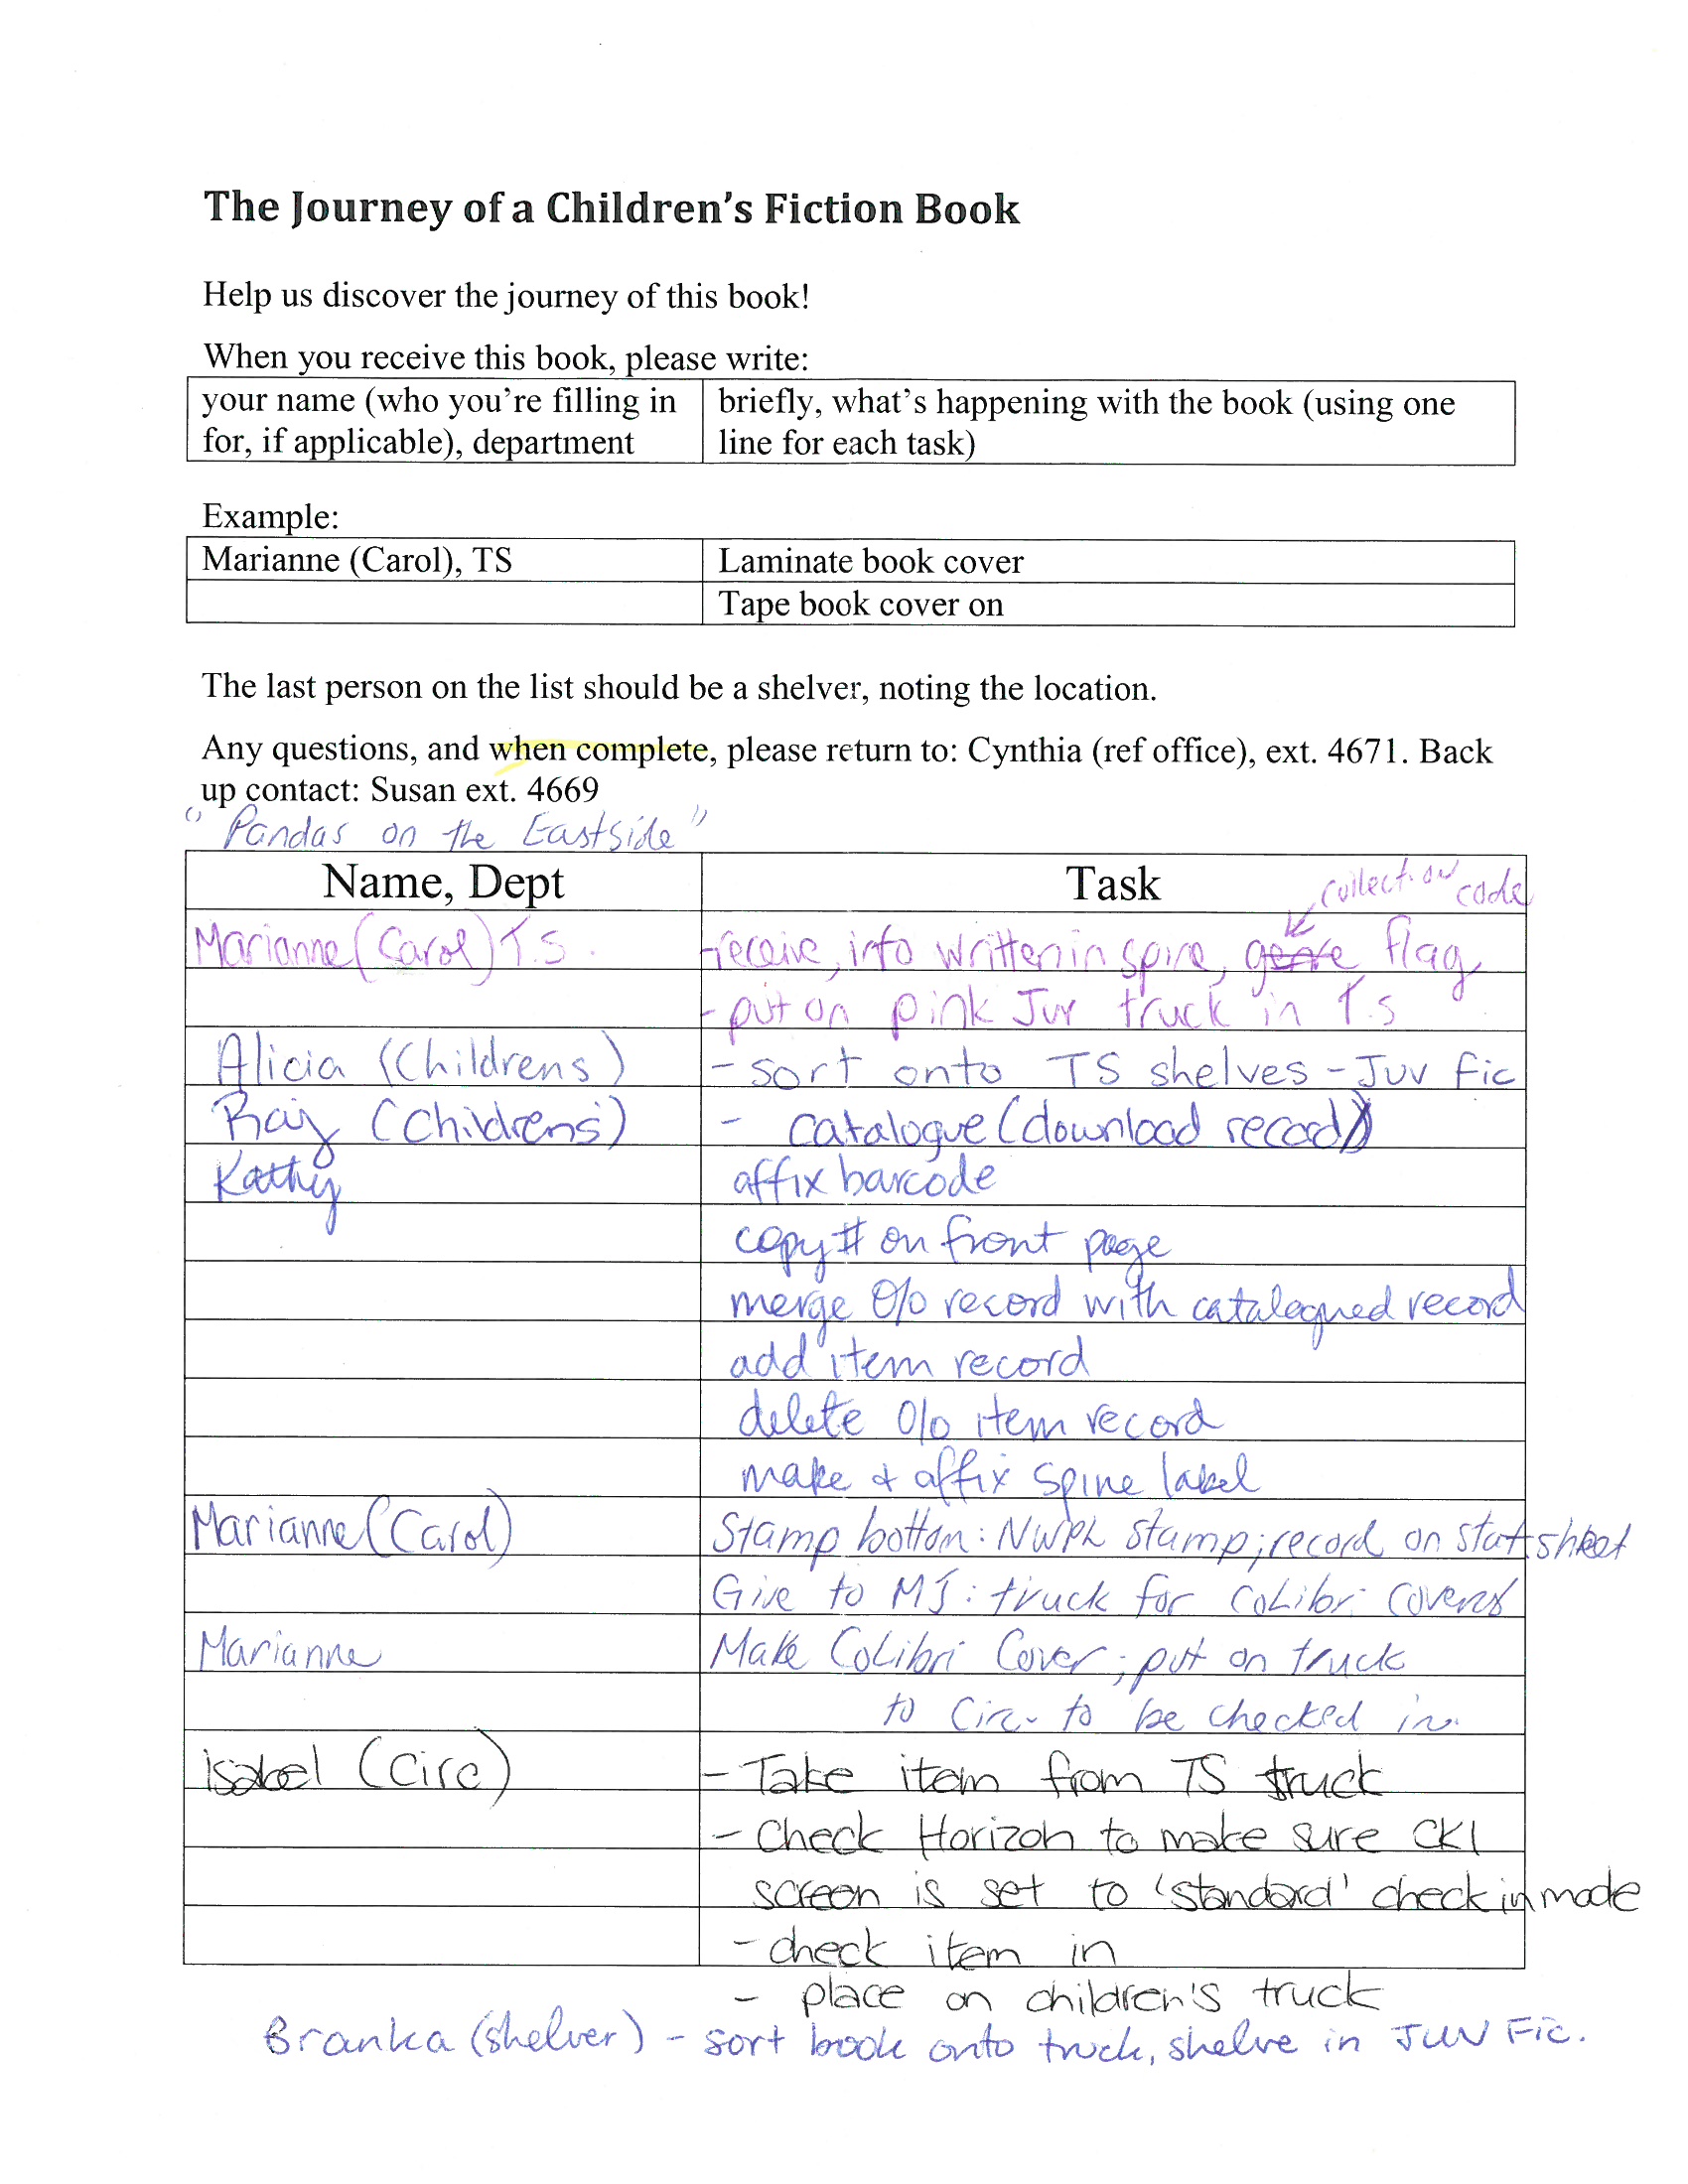 The Journey of a Children's Fiction Book
Help us discover the journey of this book!
When you receive this book, please write:
your name (who you're filling in for, if applicable), department
briefly, what's happening with the book (using one line for each task)
Example:
Marianne (Carol), TS
Laminate book cover
Tape book cover on
The last person on the list should be a shelver, noting the location.
Any questions, and when complete, please return to: Cynthia (ref office), ext. 4671. Back
up contact: Susan ext. 4669
"Pandas on the Eastside"
Name, Dept
Task
collection code
Marianne (Carol) T.S.
-receive, info written in spine, genre flag
- put on pink Juv truck in T.S
Alicia (Childrens)
- sort onto TS shelves - Juv Fic
(Childrens)
- catalogue (download record)
Kathy
affix barcode
copy # on front page
merge O/o record with catalogued record
add item record
delete O/o item record
make & affix spine label
Marianne (Carol)
Stamp bottom: NWPL stamp; record on stat sheet
Give to MJ: truck for CoLibri covers
Marianne
Make CoLibri Cover; put on truck
to Circ- to be checked in.
isabel (Circ)
- Take item from TS truck
- Check Horizon to make sure CKI
screen is set to 'standard' check in mode
- check item in
- place on children's truck
Branka (shelver) - sort book onto truck, shelve in JUV Fic.